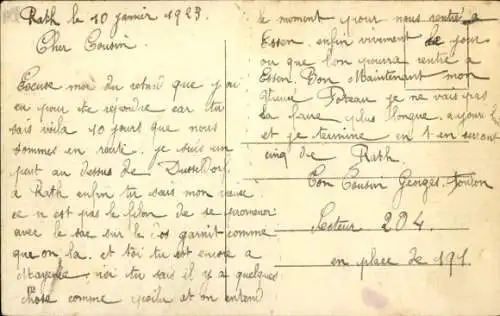 Rath le 10 janvier 1923.
Cher Cousin.
Excuse moi du retard que j'ai
eu pour te repondre car tu
sais voila 10 jours que nous
sommes en route. je suis un
peut au dessus de Dusseldorf.
a Rath enfin tu sais mon vieux
ce n est pas le filon de se promener
avec le sac sur le dos garnit comme
que on la. et toi tu est encore a
Mayence, moi tu sais il y a quelques
chose comme poilu et on entend
le moment pour nous rentré a
Essen. enfin vivement le jour
ou que l'on pourra rentré a
Essen. Bon Maintenant mon
Vieux Poteau je ne vais pas
la faire plus longue. aujourd hui
et je termine en t en serrant
cinq de Rath.
Ton Cousin Georges.
Secteur 204.
en place de 191.